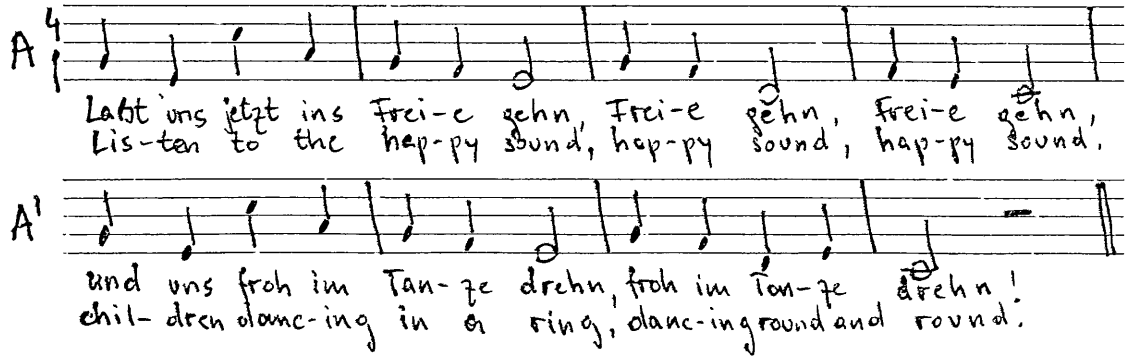 A 4
Laßt uns jetzt ins Frei-e gehn, Frei-e gehn, Frei-e gehn,
Lis-ten to the hap-py sound, hap-py sound, hap-py sound.
A'
und uns froh im Tan-ze drehn, froh im Tan-ze drehn!
chil-dren danc-ing in a ring, danc-ing round and round.